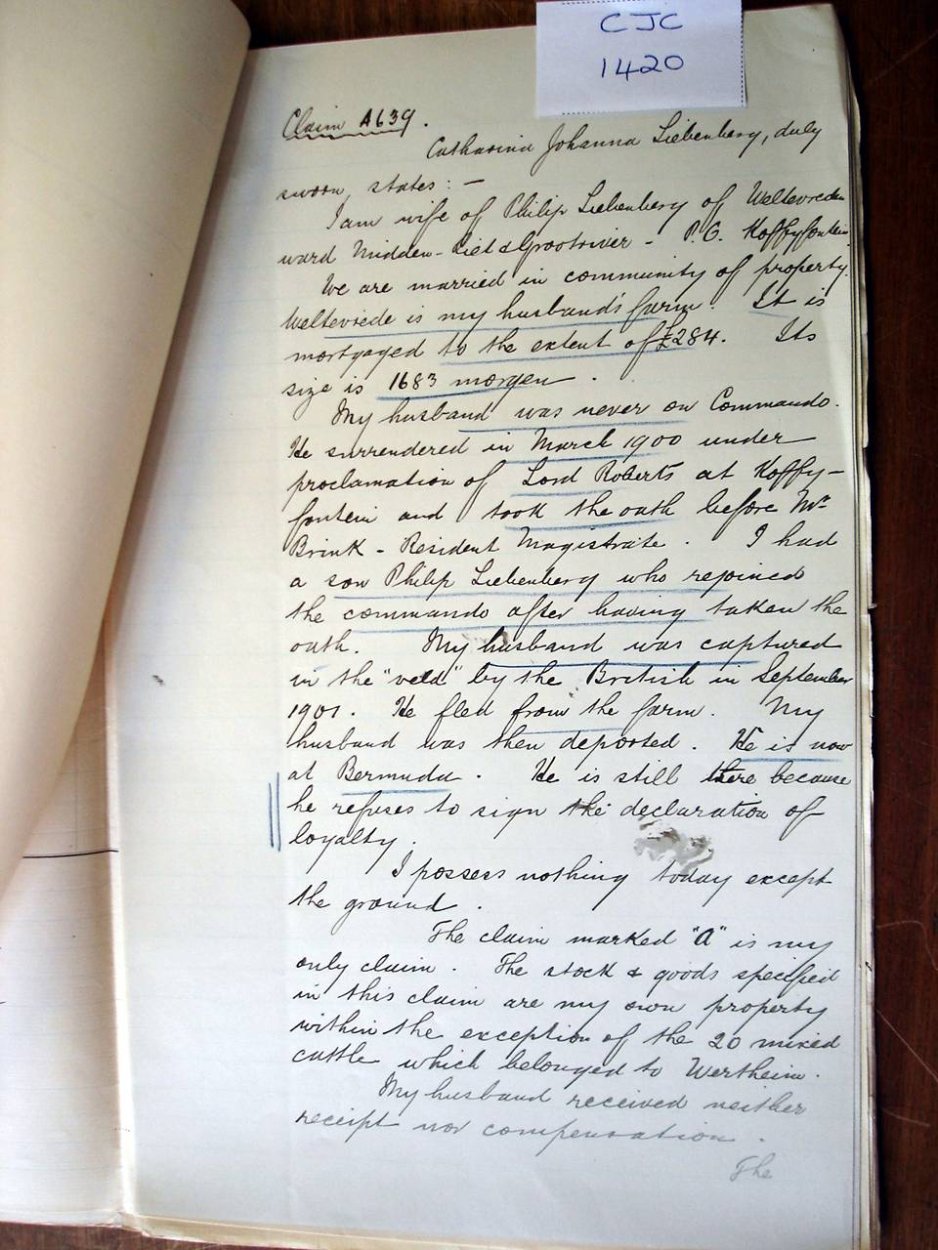 CJC
1420
Claim A639.
Catharina Johanna Liebenberg, duly
sworn, states: —
I am wife of Philip Liebenberg of Weltevreden
ward Midden-Riet & Grootrivier - P.O. Koffyfontein.
We are married in community of property.
Weltevrede is my husband's farm. It is
mortgaged to the extent of £284. Its
size is 1683 morgen.
My husband was never on Commando.
He surrendered in March 1900 under
proclamation of Lord Roberts at Koffy-
fontein and took the oath before Mr
Brink - Resident Magistrate. I had
a son Philip Liebenberg who rejoined
the commando after having taken the
oath. My husband was captured
in the "veld" by the British in September
1901. He fled from the farm. My
husband was then deported. He is now
at Bermuda. He is still there because
he refuses to sign the declaration of
loyalty.
I possess nothing today except
the ground.
The claim marked "A" is my
only claim. The stock & goods specified
in this claim are my own property
within the exception of the 20 mixed
cattle which belonged to Wertheim.
My husband received neither
receipt nor compensation.
The